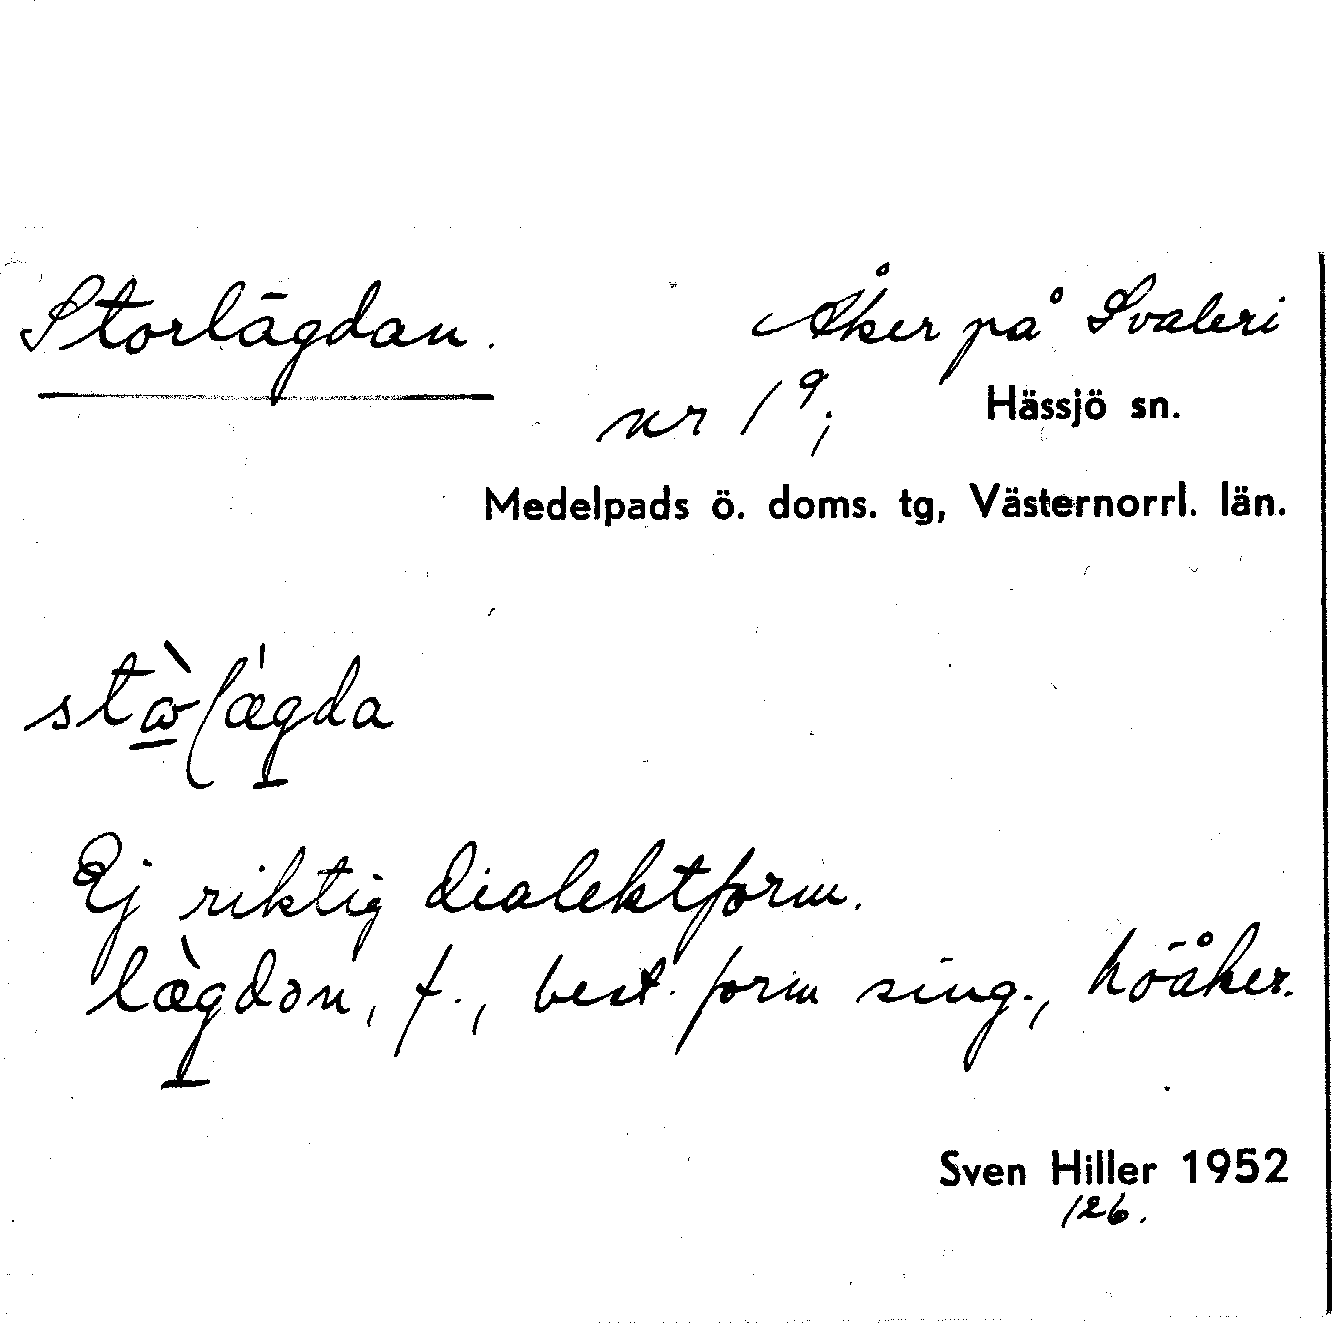 Storlägdan. Åker på Svaleri
nr 1⁹; Hässjö sn.
Medelpads ö. doms. tg, Västernorrl. län.
Ej riktig dialektform.
læ̀gdən, f., best. form sing., höåker.
Sven Hiller 1952
126.